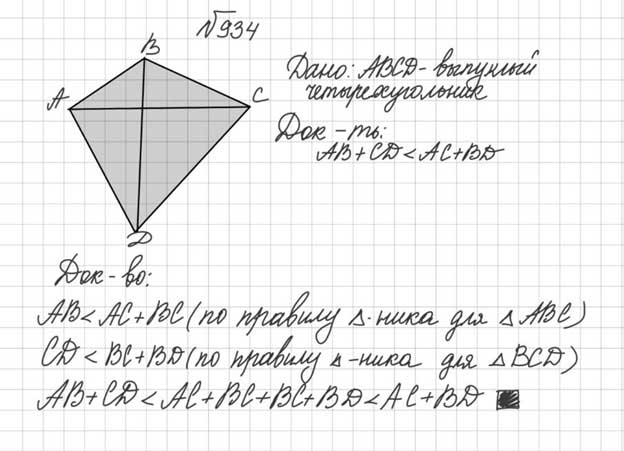 №934
B
A
C
D
Дано: ABCD - выпуклый
четырехугольник
Док-ть:
AB + CD < AC + BD
Док-во:
AB < AC + BC (по правилу △-ника для △ABC)
CD < BC + BD (по правилу △-ника для △BCD)
AB + CD < AC + BC + BC + BD < AC + BD ■